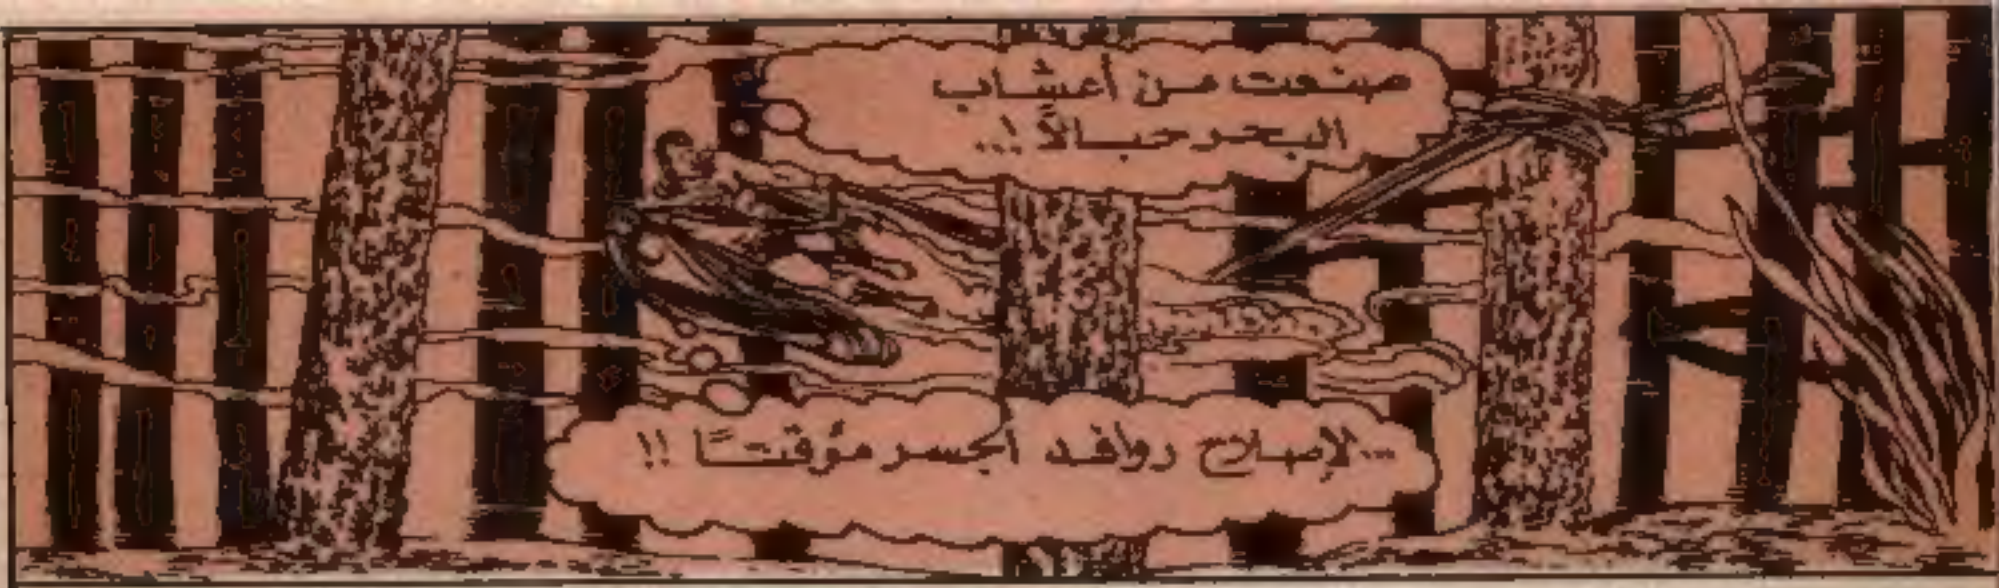 صنعت من أعشاب
البحر حبالاً !...
...لإصلاح روافد الجسر مؤقتـًا !!